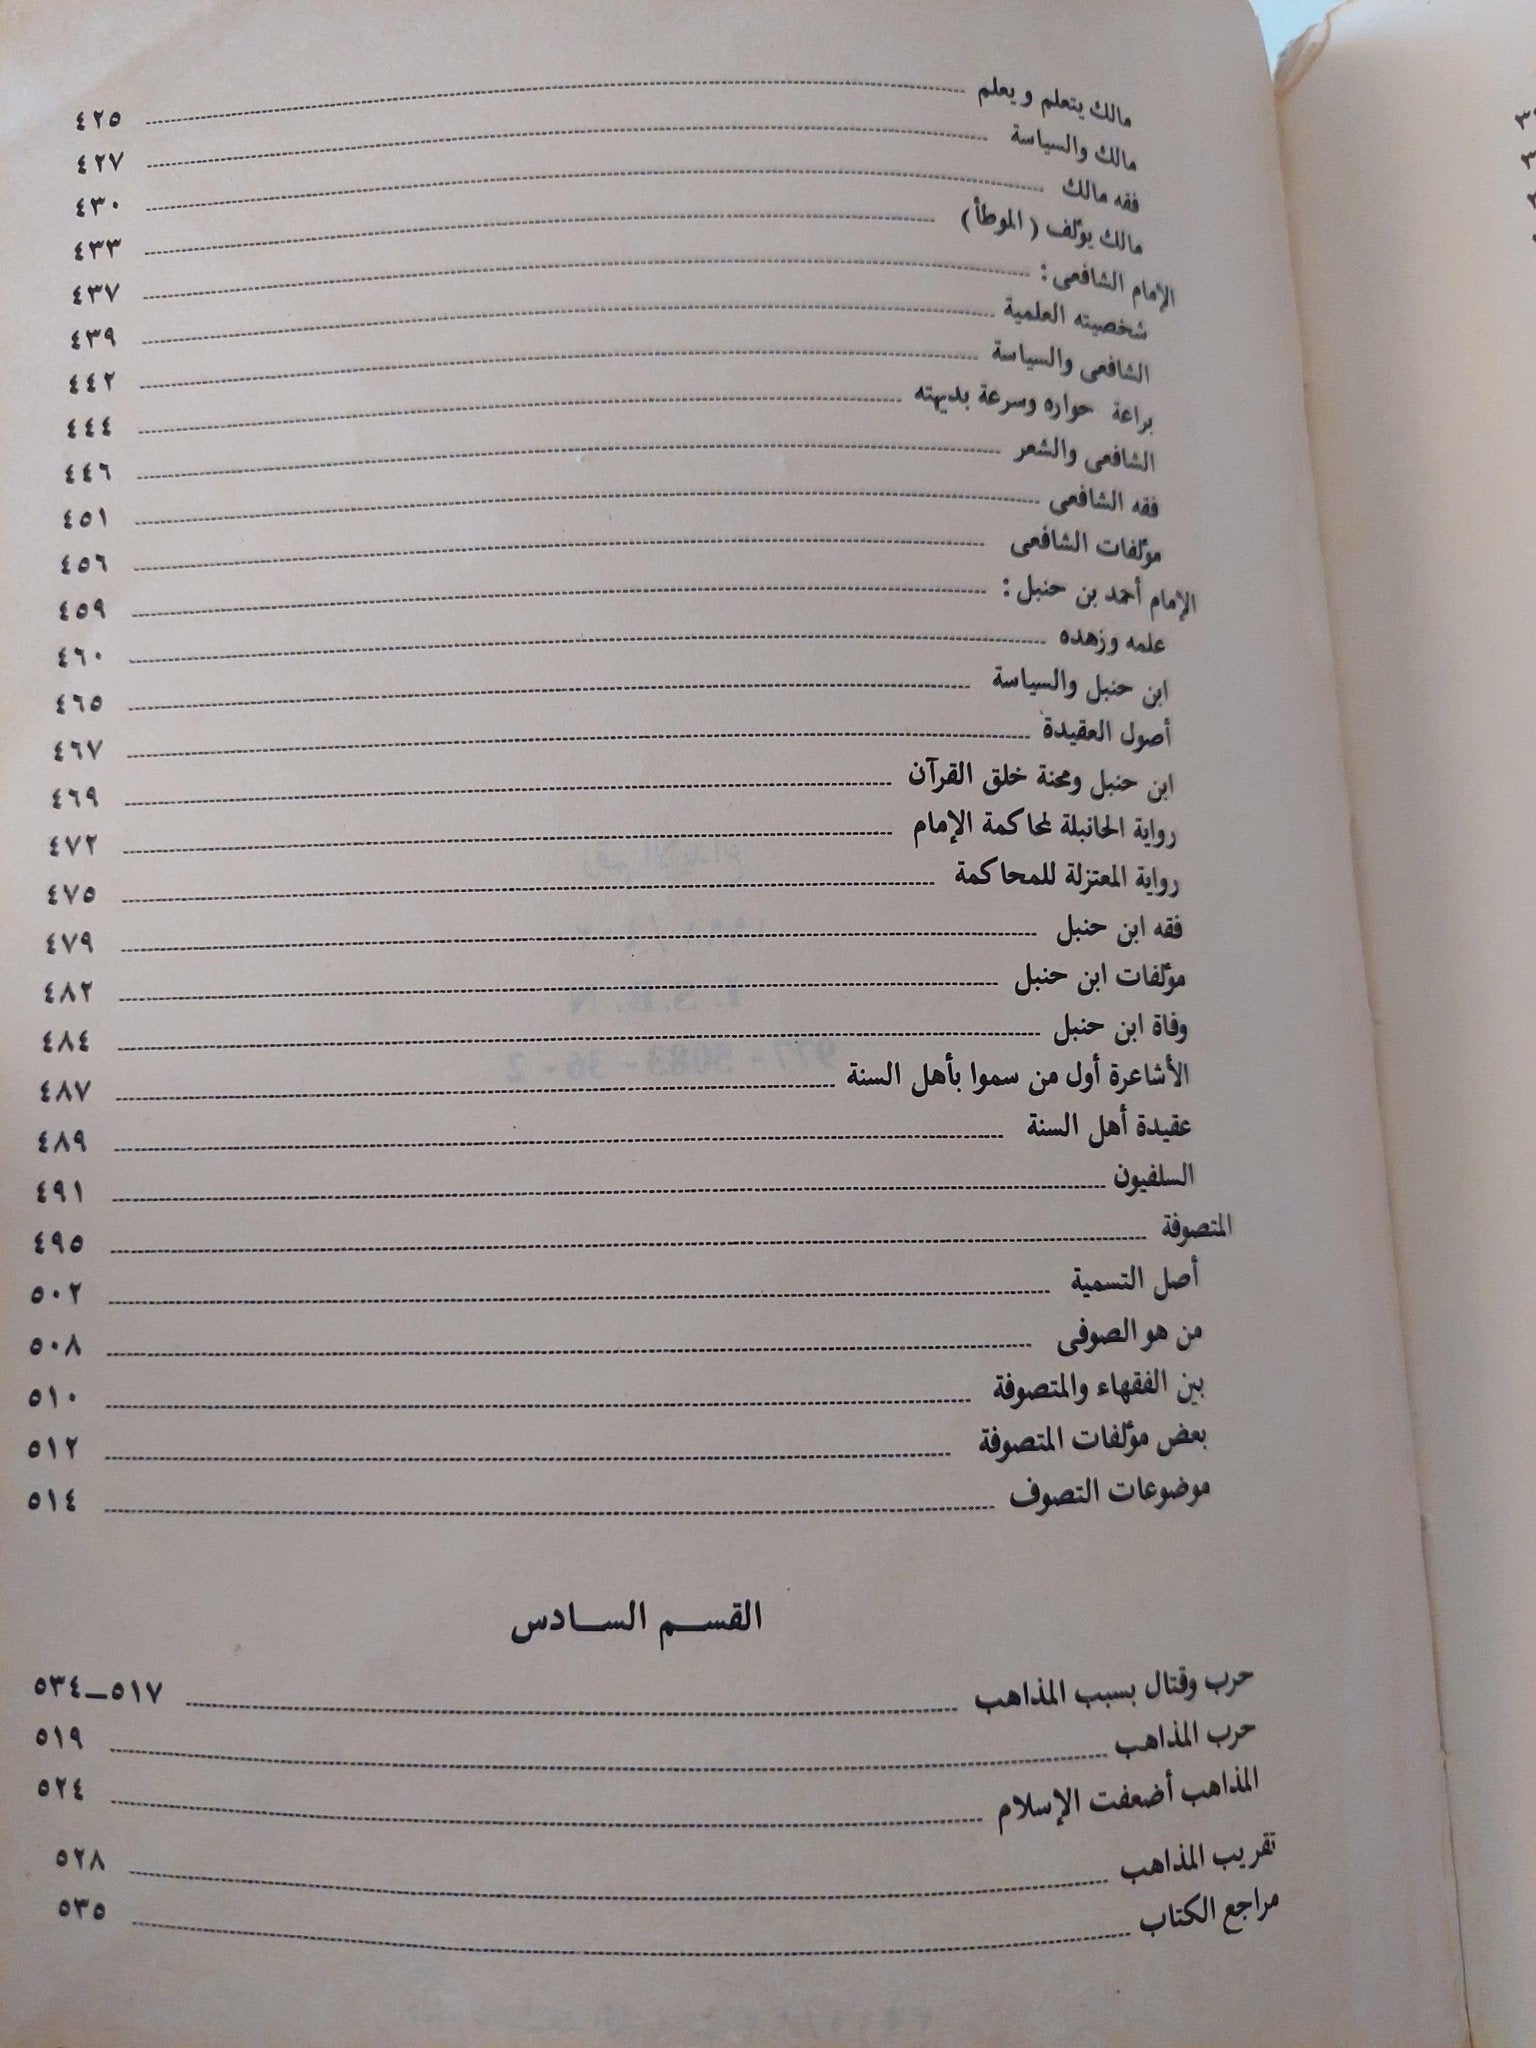 مالك يتعلم ويعلم ٤٢٥
مالك والسياسة ٤٢٧
فقه مالك ٤٣٠
مالك يؤلف (الموطأ) ٤٣٣
الإمام الشافعى : ٤٣٧
شخصيته العلمية ٤٣٩
الشافعى والسياسة ٤٤٢
براعة حواره وسرعة بديهته ٤٤٤
الشافعى والشعر ٤٤٦
فقه الشافعى ٤٥١
مؤلفات الشافعى ٤٥٦
الإمام أحمد بن حنبل : ٤٥٩
علمه وزهده ٤٦٠
ابن حنبل والسياسة ٤٦٥
أصول العقيدة ٤٦٧
ابن حنبل ومحنة خلق القرآن ٤٦٩
رواية الحانبلة لمحاكمة الإمام ٤٧٢
رواية المعتزلة للمحاكمة ٤٧٥
فقه ابن حنبل ٤٧٩
مؤلفات ابن حنبل ٤٨٢
وفاة ابن حنبل ٤٨٤
الأشاعرة أول من سموا بأهل السنة ٤٨٧
عقيدة أهل السنة ٤٨٩
السلفيون ٤٩١
المتصوفة ٤٩٥
أصل التسمية ٥٠٢
من هو الصوفى ٥٠٨
بين الفقهاء والمتصوفة ٥١٠
بعض مؤلفات المتصوفة ٥١٢
موضوعات التصوف ٥١٤
القسم السادس
حرب وقتال بسبب المذاهب ٥١٧–٥٣٤
حرب المذاهب ٥١٩
المذاهب أضعفت الإسلام ٥٢٤
تقريب المذاهب ٥٢٨
مراجع الكتاب ٥٣٥